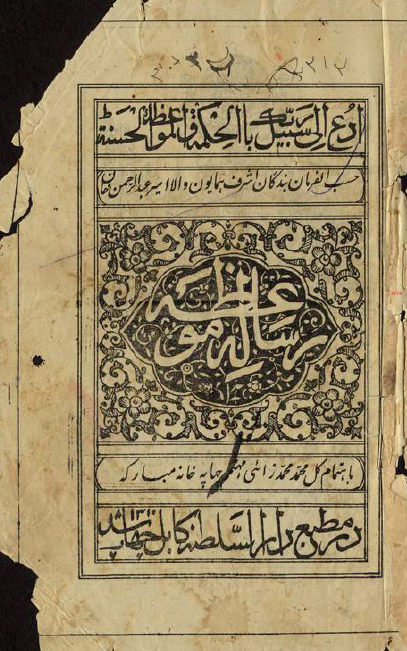 ادع الی سبیل ربک باالحکمة والموعظة الحسنة
حسب الفرمان بندگان اشرف همایون والا امیر عبدالرحمن خان
رساله موعظه
باهتمام گل محمد محمدزائی مهتمم چهاپه خانه مبارکه
در مطبع دارالسلطنه کابل چهاپ شد ۱۳۱۰